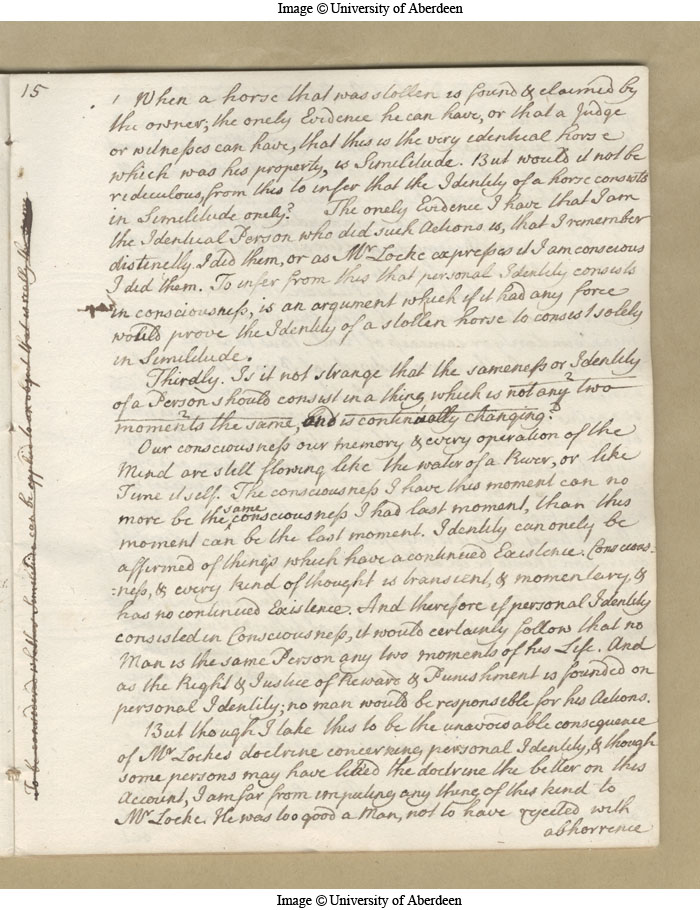 Image © University of Aberdeen
15
When a horse that was stollen is found & claimed by
the owner, the onely Evidence he can have, or that a Judge
or witnesses can have, that this is the very identical horse
which was his property, is Similitude. But would it not be
ridiculous, from this to infer that the Identity of a horse consists
in Similitude onely? The onely Evidence I have that I am
the Identical Person who did such Actions is, that I remember
distinctly I did them, or as Mr Locke expresses it I am conscious
I did them. To infer from this that personal Identity consists
in consciousness, is an argument which if it had any force
would prove the Identity of a stollen horse to consist solely
in Similitude.
Thirdly. Is it not strange that the sameness or Identity
of a Person should consist in a thing which is not any two
moments the same, and is continually changing?
Our consciousness our memory & every operation of the
Mind are still flowing like the water of a River, or like
Time itself. The consciousness I have this moment can no
more be the same consciousness I had last moment, than this
moment can be the last moment. Identity can onely be
affirmed of things which have a continued Existence. Conscious-
:ness, & every kind of thought is transient, & momentary, &
has no continued Existence. And therefore if personal Identity
consisted in Consciousness, it would certainly follow that no
Man is the same Person any two moments of his Life. And
as the Right & Justice of Reward & Punishment is founded on
personal Identity; no man would be responsible for his Actions.
But though I take this to be the unavoidable consequence
of Mr Lockes doctrine concerning personal Identity, & though
some persons may have liked the doctrine the better on this
Account, I am far from imputing any thing of this kind to
Mr Locke. He was too good a Man, not to have rejected with
abhorrence
To be considered whether Similitude can be applied to an object that is really the
Image © University of Aberdeen